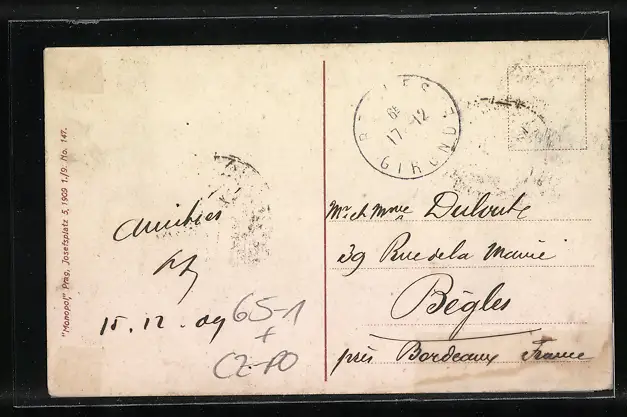 "Monopol" Prag, Josefsplatz 5, 1909 1./9. No. 147.
Amitiés
15.12.09
65-1
+
CZ-PO
BEGLES
17-12
09
GIRONDE
Mr et Mme Duloute
39 Rue de la Mairie
Bègles
près Bordeaux France